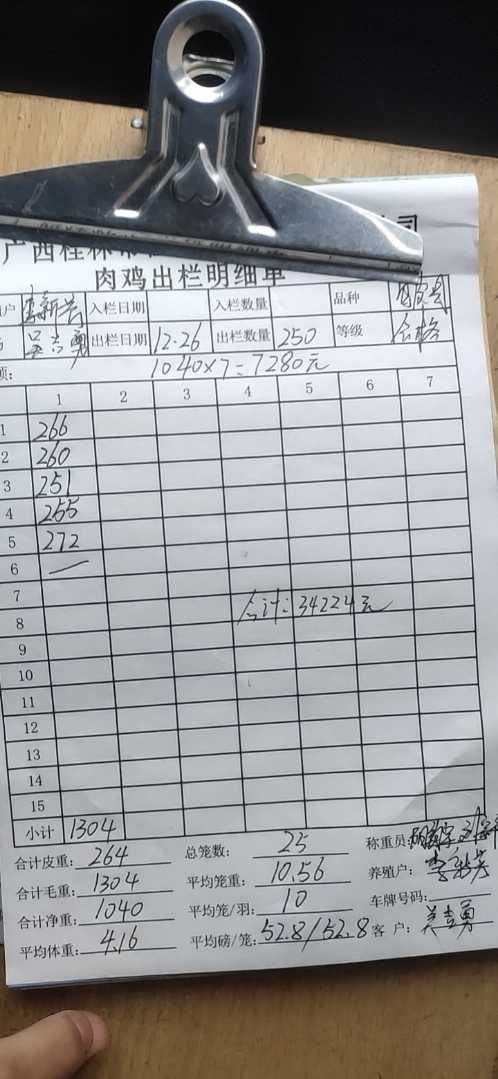 广西桂林市 公司
肉鸡出栏明细单
户 李新芳 入栏日期 入栏数量 品种
吴吉勇 出栏日期 12.26 出栏数量 250 等级 合格
1040×7=7280元
1 2 3 4 5 6 7
1 266
2 260
3 251
4 255
5 272
6 —
7
8 合计:34224元
9
10
11
12
13
14
15
小计 1304
合计皮重: 264 总笼数: 25 称重员:
合计毛重: 1304 平均笼重: 10.56 养殖户: 李新芳
合计净重: 1040 平均笼/羽: 10 车牌号码:
平均体重: 4.16 平均磅/笼: 52.8/52.8 客户: 吴吉勇